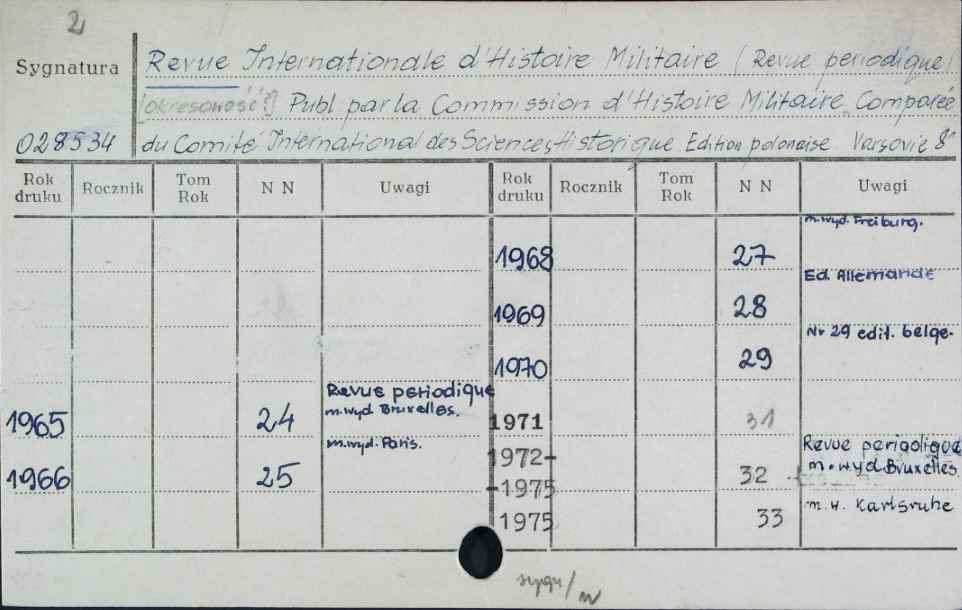 2
Sygnatura
Revue Internationale d'Histoire Militaire (Revue periodique)
[okresoność?] Publ. par la Commission d'Histoire Militaire Comparée
028534 du Comité International des Sciences Historique. Edition polonaise. Varsovie 8°
Rok druku Rocznik Tom Rok N N Uwagi Rok druku Rocznik Tom Rok N N Uwagi
m.wyd. Freiburg.
1968 27
Ed. Allemande
1969 28
Nr 29 edit. belge.
1970 29
Revue periodique
m.wyd. Bruxelles.
1965 24
1971 31
m.wyd. Paris.
1966 25
Revue periodique
1972-
-1975 32 m.wyd. Bruxelles
1975 33 m.w. Karlsruhe